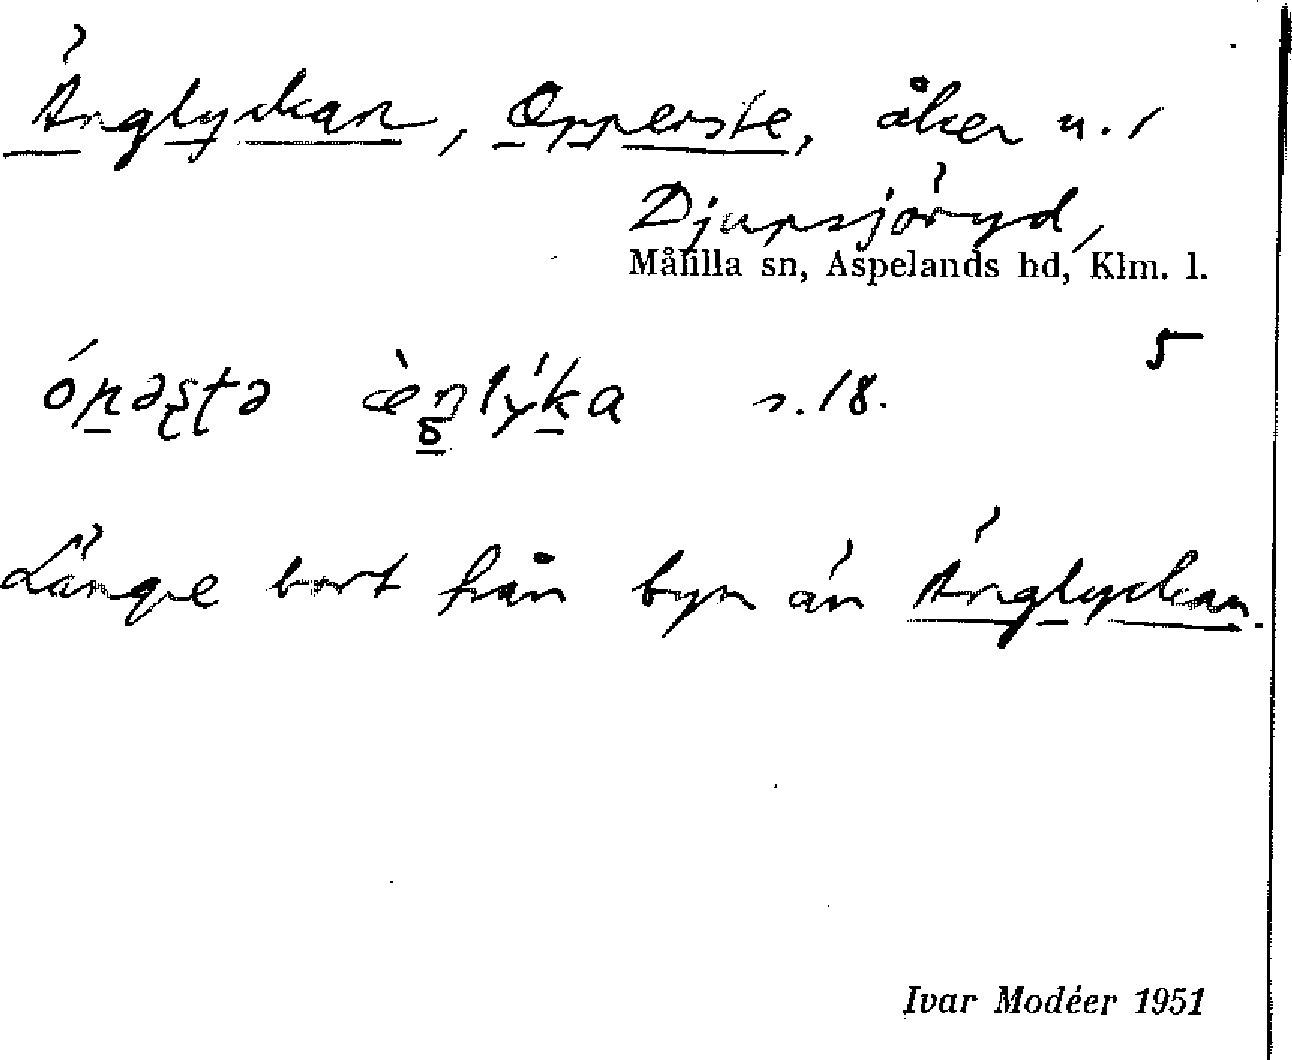 Änglyckan, Opperste, åker u. i
Djupsjöryd,
Målilla sn, Aspelands hd, Klm. l.
5
s. 18.
Längre bort från byn än Änglyckan.
Ivar Modéer 1951